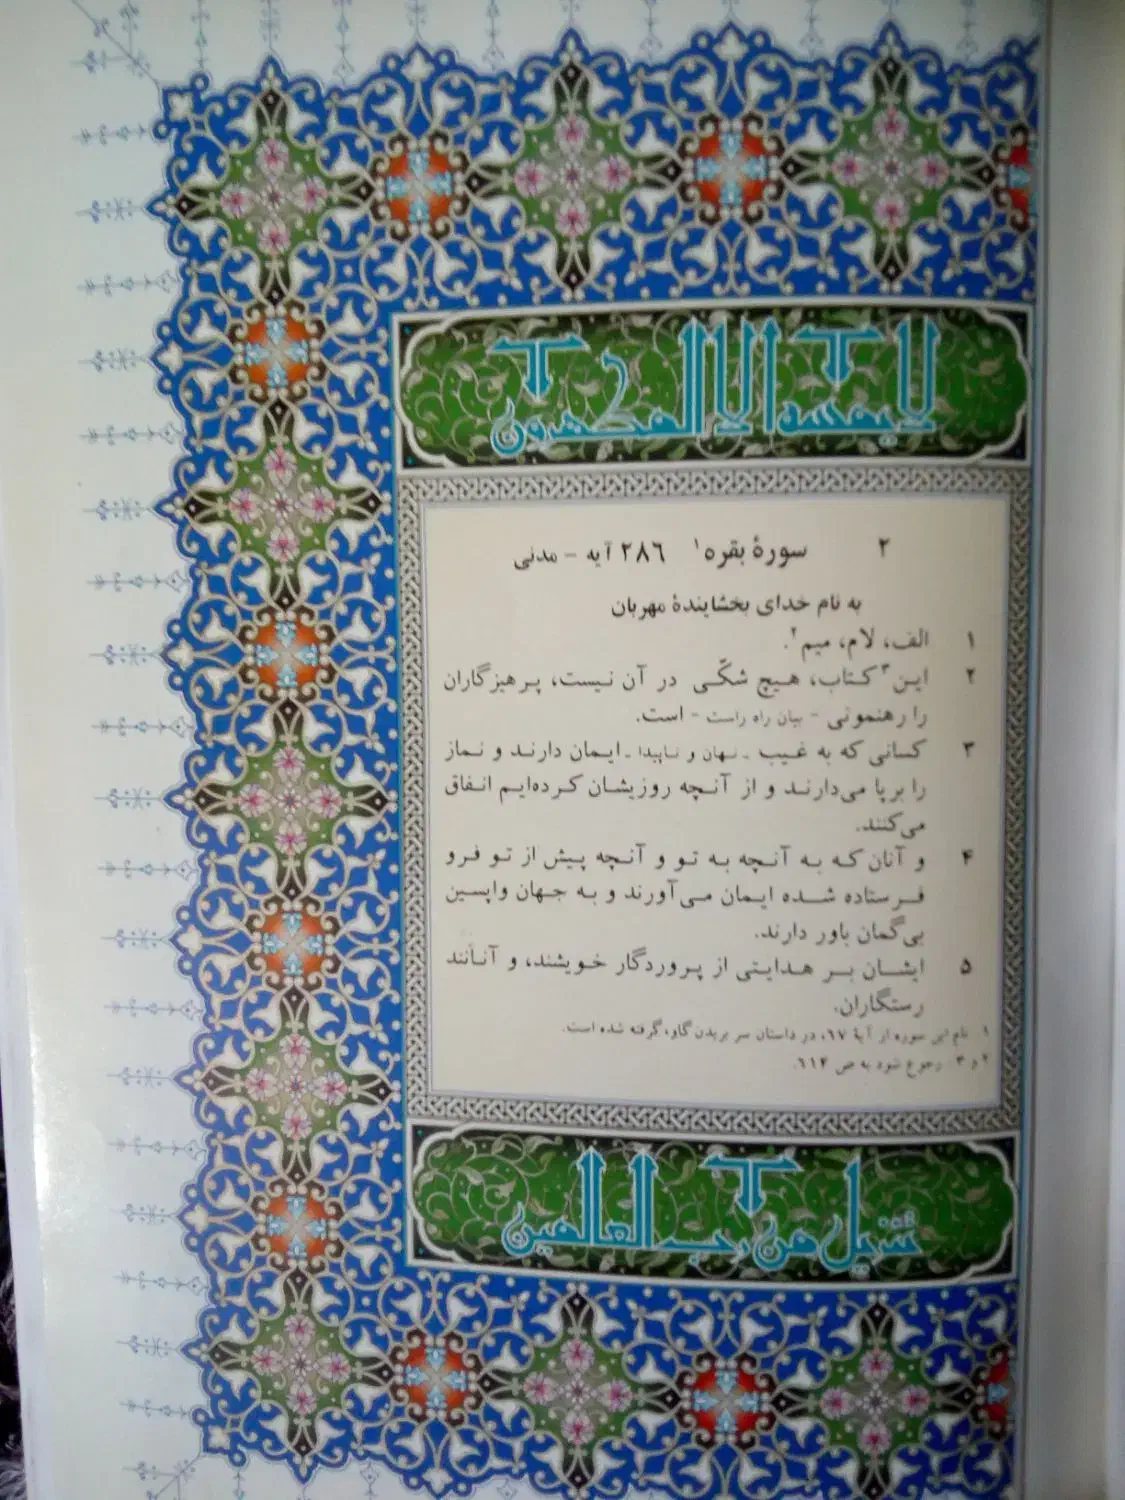 لا یمسه الا المطهرون
۲ سورهٔ بقره۱ ۲۸۶ آیه - مدنی
به نام خدای بخشایندهٔ مهربان
۱ الف، لام، میم۲.
۲ این۳ کتاب، هیچ شکّی در آن نیست، پرهیزگاران
را رهنمونی - بیان راه راست - است.
۳ کسانی که به غیب - نهان و ناپیدا - ایمان دارند و نماز
را برپا می‌دارند و از آنچه روزیشان کرده‌ایم انفاق
می‌کنند.
۴ و آنان که به آنچه به تو و آنچه پیش از تو فرو
فرستاده شده ایمان می‌آورند و به جهان واپسین
بی‌گمان باور دارند.
۵ ایشان بر هدایتی از پروردگار خویشند، و آنانند
رستگاران.
۱ نام این سوره از آیهٔ ۶۷، در داستان سر بریدن گاو، گرفته شده است.
۲ و ۳ رجوع شود به ص ۶۱۲.
تنزیل من رب العالمین